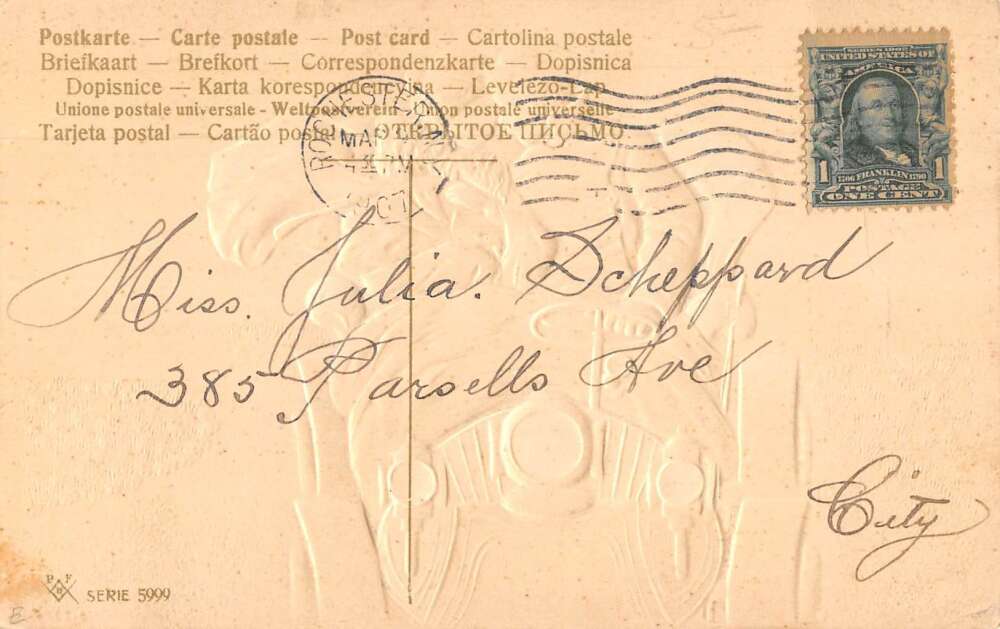 Postkarte — Carte postale — Post card — Cartolina postale
Briefkaart — Brefkort — Correspondenzkarte — Dopisnica
Dopisnice — Karta korespondencyjna — Levelezö-Lap
Unione postale universale - Weltpostverein - Union postale universelle
Tarjeta postal — Cartão postal — ОТКРЫТОЕ ПИСЬМО
ROCHESTER, N.Y.
MAR
1907
SERIES 1902
UNITED STATES OF
AMERICA
1706 FRANKLIN 1790
1 POSTAGE 1
ONE CENT
Miss. Julia. Scheppard
385 Parsells Ave
City
P F
B
SERIE 5999
E